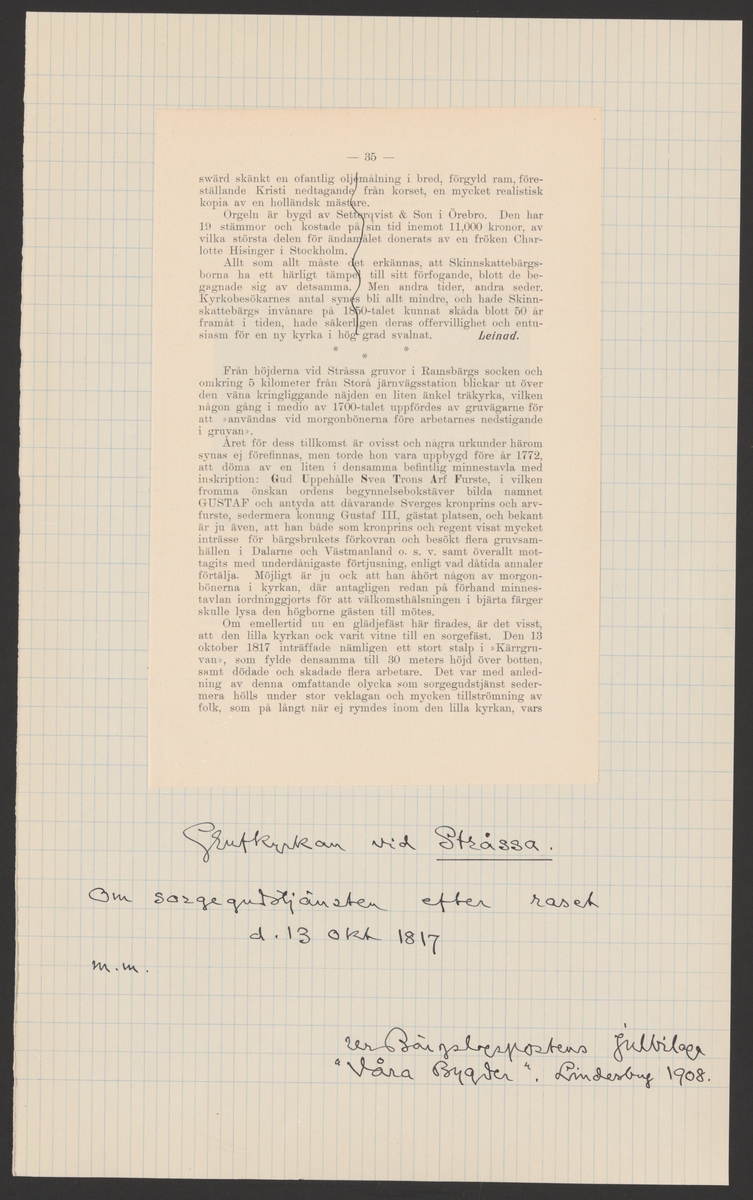 — 35 —
swärd skänkt en ofantlig oljemålning i bred, förgyld ram, före-
ställande Kristi nedtagande från korset, en mycket realistisk
kopia av en holländsk mästare.
Orgeln är bygd av Setterqvist & Son i Örebro. Den har
19 stämmor och kostade på sin tid inemot 11,000 kronor, av
vilka största delen för ändamålet donerats av en fröken Char-
lotte Hisinger i Stockholm.
Allt som allt måste det erkännas, att Skinnskattebärgs-
borna ha ett härligt tämpel till sitt förfogande, blott de be-
gagnade sig av detsamma. Men andra tider, andra seder.
Kyrkobesökarnes antal synes bli allt mindre, och hade Skinn-
skattebärgs invånare på 1850-talet kunnat skåda blott 50 år
framåt i tiden, hade säkerligen deras offervillighet och entu-
siasm för en ny kyrka i hög grad svalnat. Leinad.
* * *
Från höjderna vid Stråssa gruvor i Ramsbärgs socken och
omkring 5 kilometer från Storå järnvägsstation blickar ut över
den väna kringliggande näjden en liten änkel träkyrka, vilken
någon gång i medio av 1700-talet uppfördes av gruvägarne för
att »användas vid morgonbönerna före arbetarnes nedstigande
i gruvan».
Året för dess tillkomst är ovisst och några urkunder härom
synas ej förefinnas, men torde hon vara uppbygd före år 1772,
att döma av en liten i densamma befintlig minnestavla med
inskription: Gud Uppehålle Svea Trons Arf Furste, i vilken
fromma önskan ordens begynnelsebokstäver bilda namnet
GUSTAF och antyda att dåvarande Sverges kronprins och arv-
furste, sedermera konung Gustaf III, gästat platsen, och bekant
är ju även, att han både som kronprins och regent visat mycket
inträsse för bärgsbrukets förkovran och besökt flera gruvsam-
hällen i Dalarne och Västmanland o. s. v. samt överallt mot-
tagits med underdånigaste förtjusning, enligt vad dåtida annaler
förtälja. Möjligt är ju ock att han åhört någon av morgon-
bönerna i kyrkan, där antagligen redan på förhand minnes-
tavlan iordninggjorts för att välkomsthälsningen i bjärta färger
skulle lysa den högborne gästen till mötes.
Om emellertid nu en glädjefäst här firades, är det visst,
att den lilla kyrkan ock varit vitne till en sorgefäst. Den 13
oktober 1817 inträffade nämligen ett stort stalp i »Kärrgru-
van», som fylde densamma till 30 meters höjd över botten,
samt dödade och skadade flera arbetare. Det var med anled-
ning av denna omfattande olycka som sorgegudstjänst seder-
mera hölls under stor veklagan och mycken tillströmning av
folk, som på långt när ej rymdes inom den lilla kyrkan, vars
Grufkyrkan vid Stråssa.
Om sorgegudstjänsten efter raset
d. 13 okt 1817
m.m.
ur Bärgslagspostens julbilaga
"Våra Bygder". Lindesberg 1908.